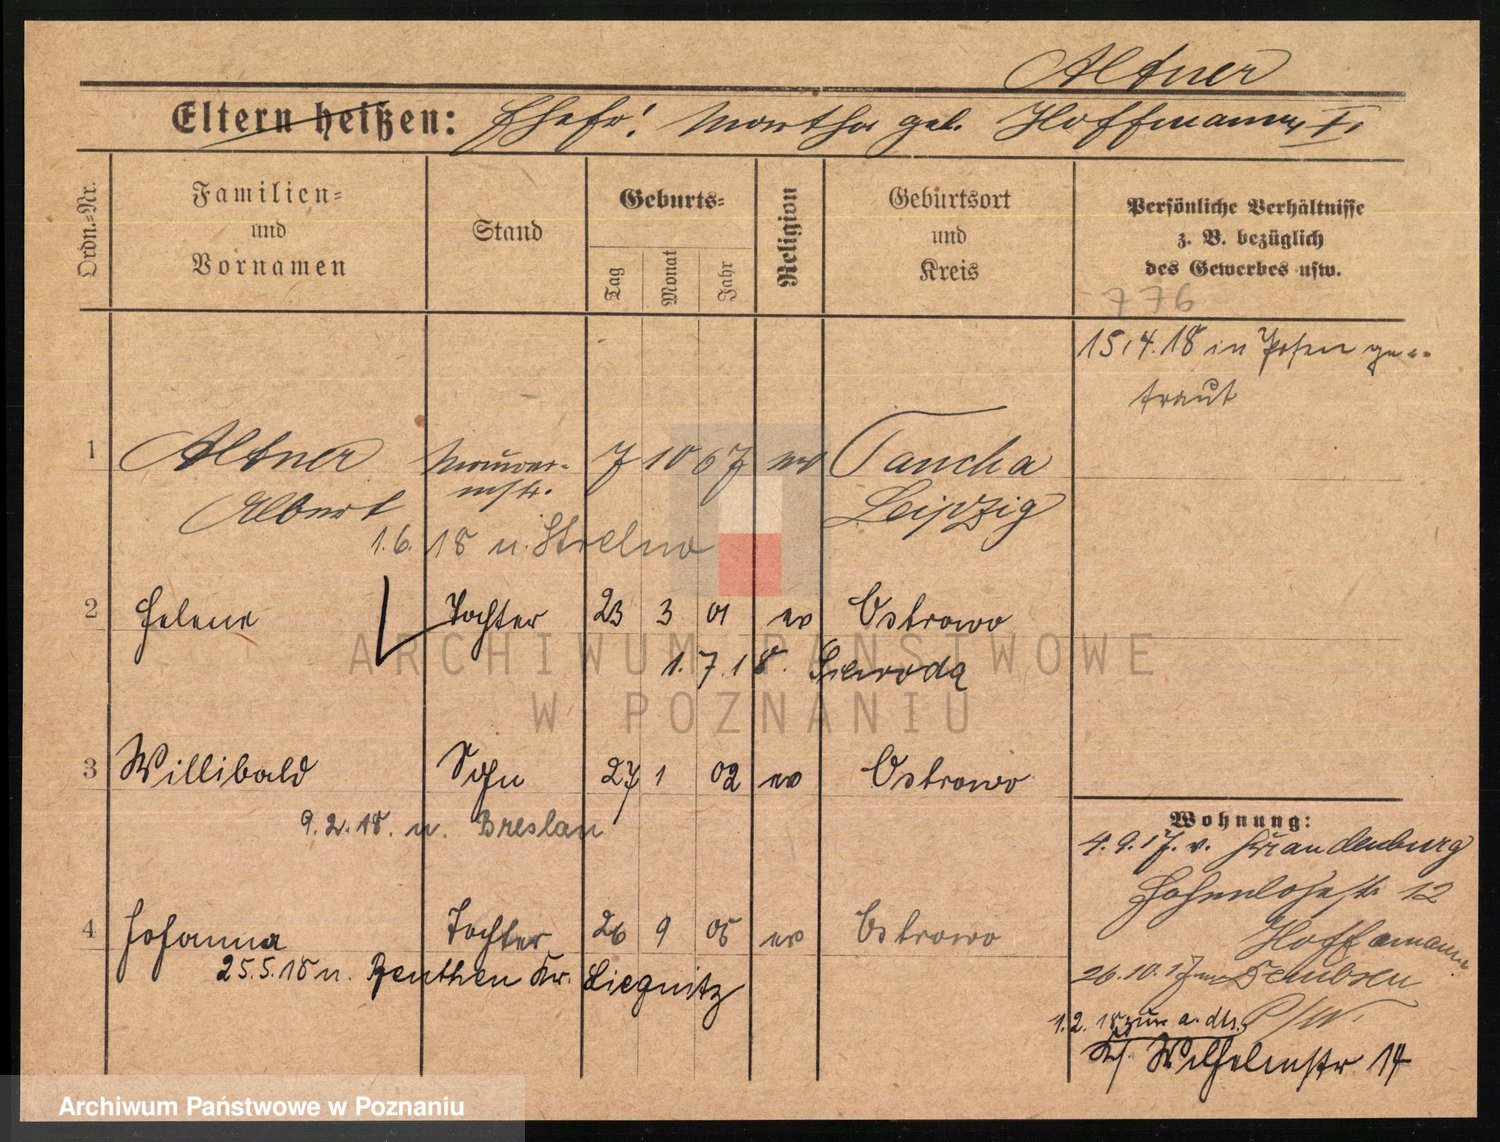 Altner
Eltern heißen: Ehefr! Martha geb. Hoffmann I.
Ordn.-Nr.
Familien-
und
Vornamen
Stand
Geburts-
Tag
Monat
Jahr
Religion
Geburtsort
und
Kreis
Persönliche Verhältnisse
z. B. bezüglich
des Gewerbes usw.
776
15.4.18 in Posen ge-
traut
1 Altner Maurer- 7 10 67 ev Taucha
Albert mstr. Leipzig
1.6.18 n. Strelno
2 Helene Tochter 23 3 01 ev Ostrowo
1.7.18.
3 Willibald Sohn 27 1 02 ev Ostrowo
9.2.18. n. Breslau
4 Johanna Tochter 26 9 05 ev Ostrowo
25.5.18 n. Beuthen Kr. Liegnitz
Wohnung:
4.9.17. v. Brandenburg
Hohenlohestr 12
Hoffmann
26.10.17 Dembsen
P/W.
1.2.18 zur a. dts.
Wilhelmstr 14
ARCHIWUM PAŃSTWOWE
W POZNANIU
Archiwum Państwowe w Poznaniu